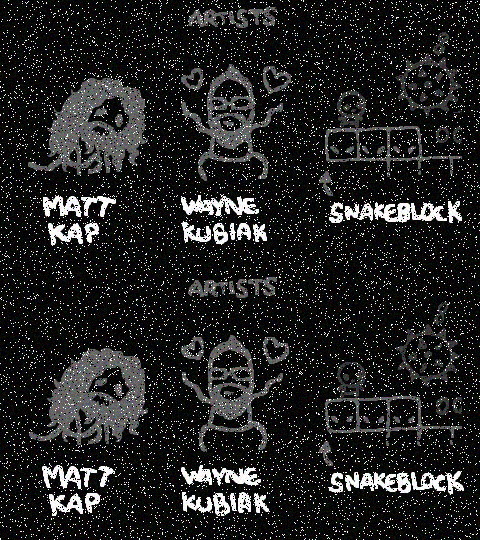 ARTISTS
MATT
KAP
WAYNE
KUBIAK
SNAKEBLOCK
ARTISTS
MATT
KAP
WAYNE
KUBIAK
SNAKEBLOCK